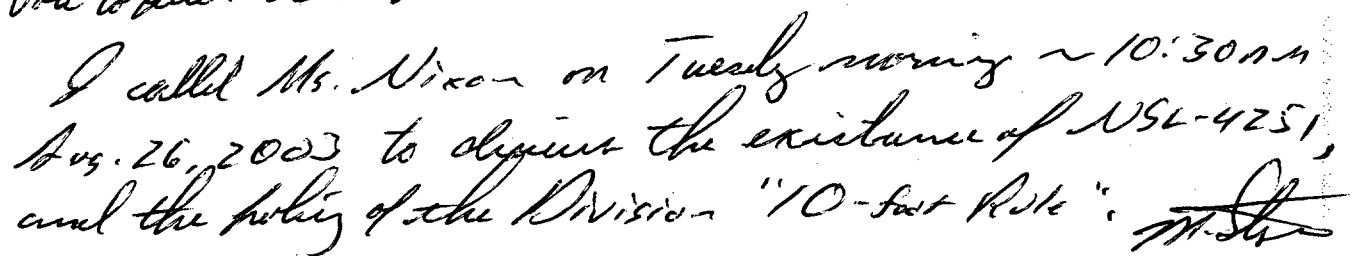 I called Ms. Nixon on Tuesday morning ~ 10:30am
Aug. 26, 2003 to discuss the existance of NSL-4251,
and the policy of the Division "10-foot Rule".